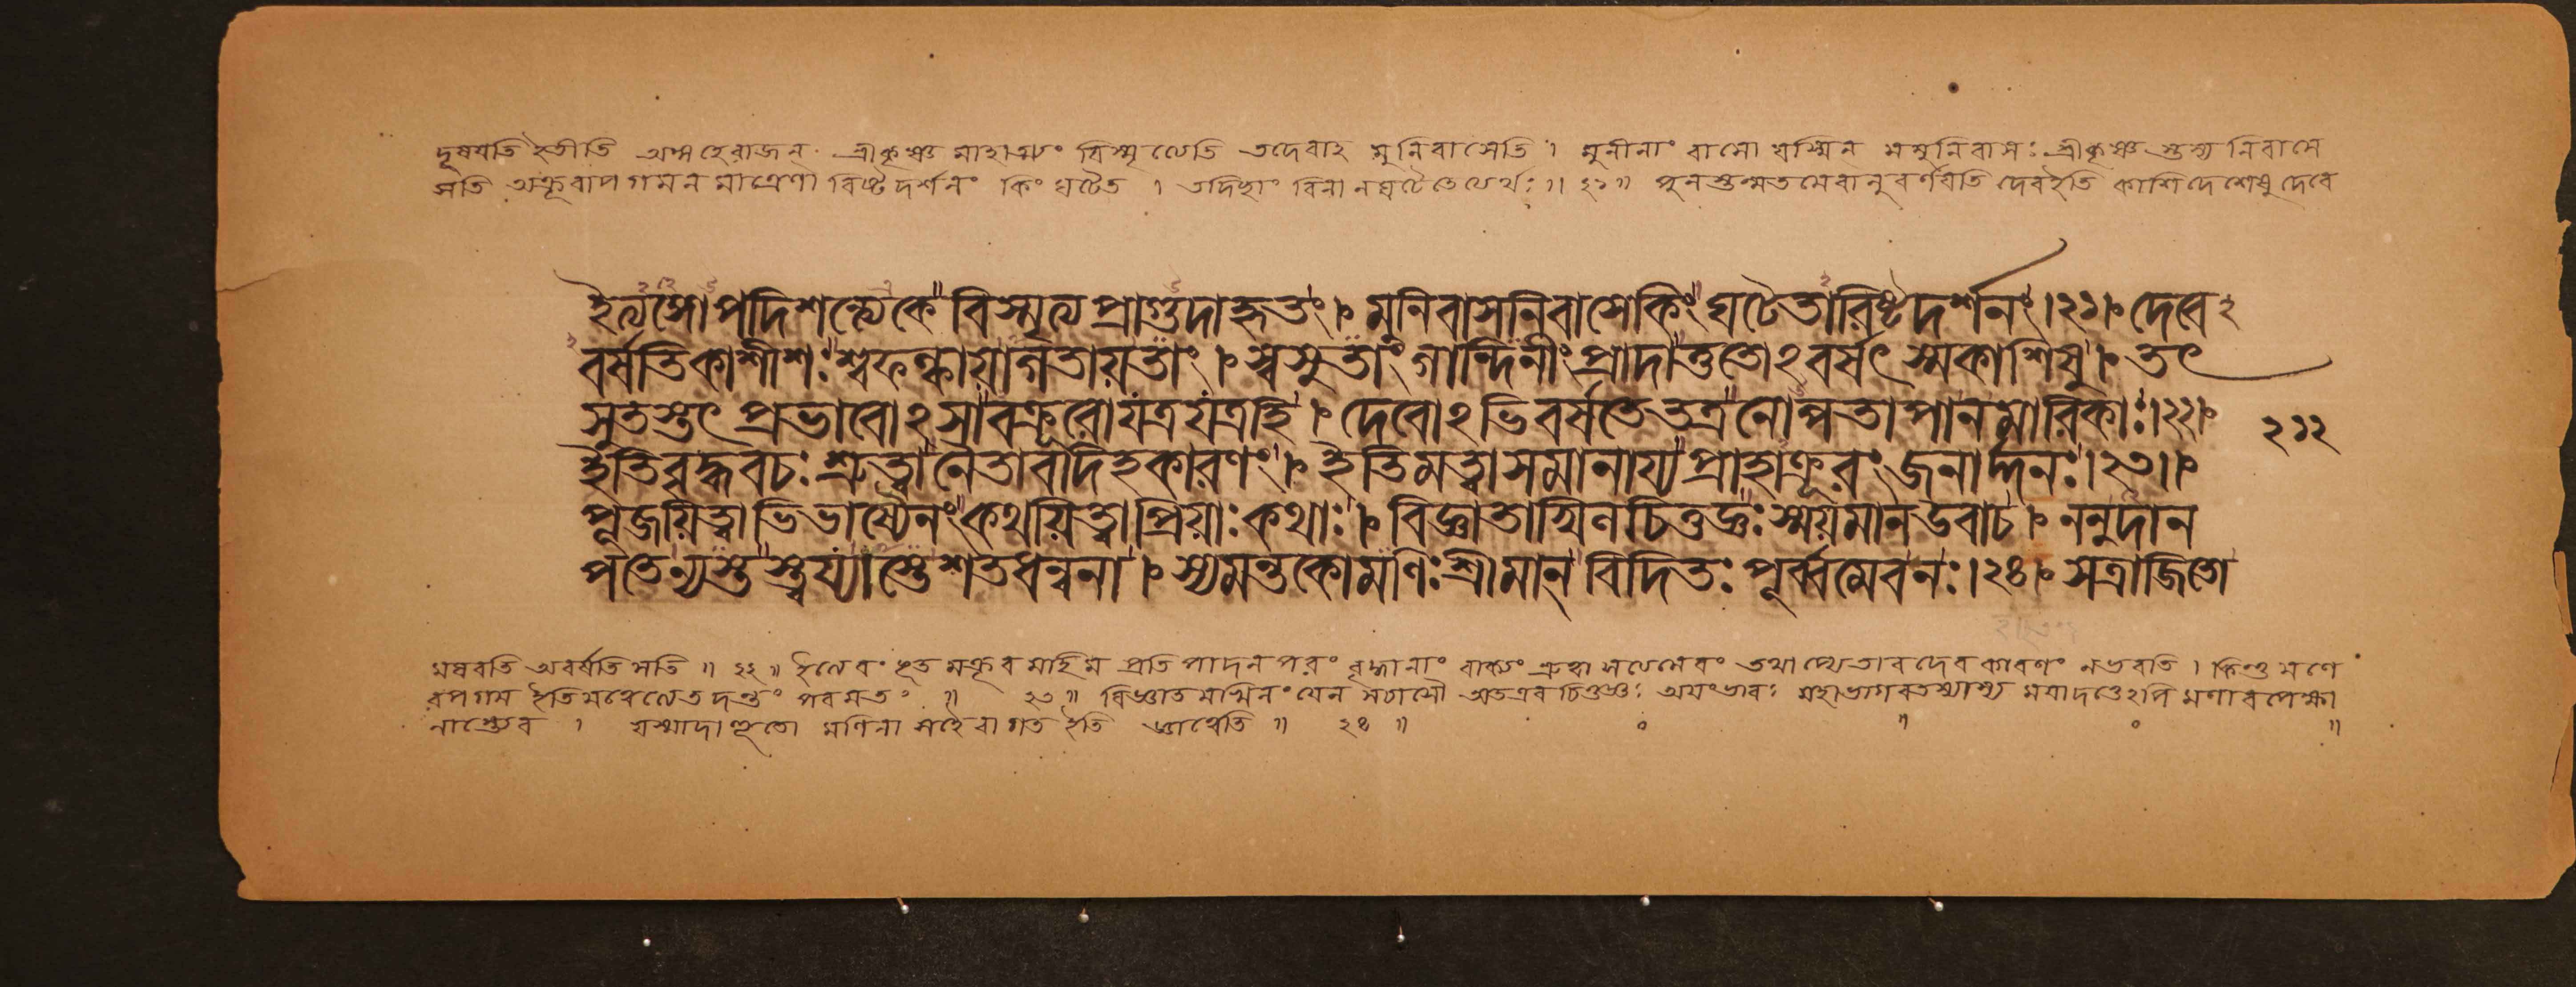 দূষযতি ইতীতি অঙ্গহেরাজন্ শ্রীকৃষ্ণ মাহাত্ম্যং বিস্মৃত্যেতি তদেবাহ মুনিবাসেতি । মুনীনাং বাসো যস্মিন্ সমুনিবাসঃ শ্রীকৃষ্ণ স্তস্য নিবাসে
সতি অক্রূরাপগমন মাত্রেণা রিষ্টদর্শনং কিং ঘটেত । তদিচ্ছাং বিনা নঘটেতেত্যর্থঃ ॥ ২১ ॥ পুনস্তন্মতমেবানুবর্ণযতি দেবইতি কাশিদেশেষু দেবে
ইত্যঙ্গোপদিশন্ত্যেকে বিস্মৃত্য প্রাগুদাহৃতং । মুনিবাসনিবাসেকিং ঘটেতারিষ্টদর্শনং ।২১। দেবে২
বর্ষতিকাশীশঃ শ্বফল্কায়াগতায়তাং । স্বসুতাং গান্দিনীং প্রাদাত্ততোঽবর্ষৎ স্মকাশিষু । তৎ
সুতস্তৎ প্রভাবোঽসাবক্রূরোযত্রযত্রহি । দেবোঽভিবর্ষতেতত্রনোপতাপানমারিকাঃ ।২২।
২১২
ইতিবৃদ্ধবচঃ শ্রুত্বানৈতাবদিহকারণং । ইতিমত্বাসমানায্য প্রাহাক্রূরং জনার্দ্দনঃ ।২৩।
পূজয়িত্বাভিভাষ্যৈনং কথয়িত্বাপ্রিয়াঃ কথাঃ । বিজ্ঞাতাখিলচিত্তজ্ঞঃ স্ময়মানউবাচ । ননুদান
পতেন্যস্তস্ত্বয্যাস্তেশতধন্বনা । স্যমন্তকোমণিঃ শ্রীমান্ বিদিতঃ পূর্ব্বমেবনঃ ।২৪। সত্রাজিতো
মঘবতি অবর্ষতি সতি ॥ ২২ ॥ ইত্যেবং ভূত মক্রূর মহিম প্রতিপাদনপরং বৃদ্ধানাং বাক্যং শ্রুত্বা সত্যমেবং তথাপ্যেতাবদেব কারণং নভবতি । কিন্তু মণে
রপগম ইতিমত্বেত্যেত দন্তং পরমতং ॥ ২৩ ॥ বিজ্ঞাত মখিলং যেন সচাসৌ অতএব চিত্তজ্ঞঃ অযংভাবঃ মহাভাগবতস্যাস্য মযাদত্তেঽপি মণাবপেক্ষা
নাস্ত্যেব । যস্মাদাহূতো মণিনা সহৈবাগত ইতি জ্ঞাত্বেতি ॥ ২৪ ॥